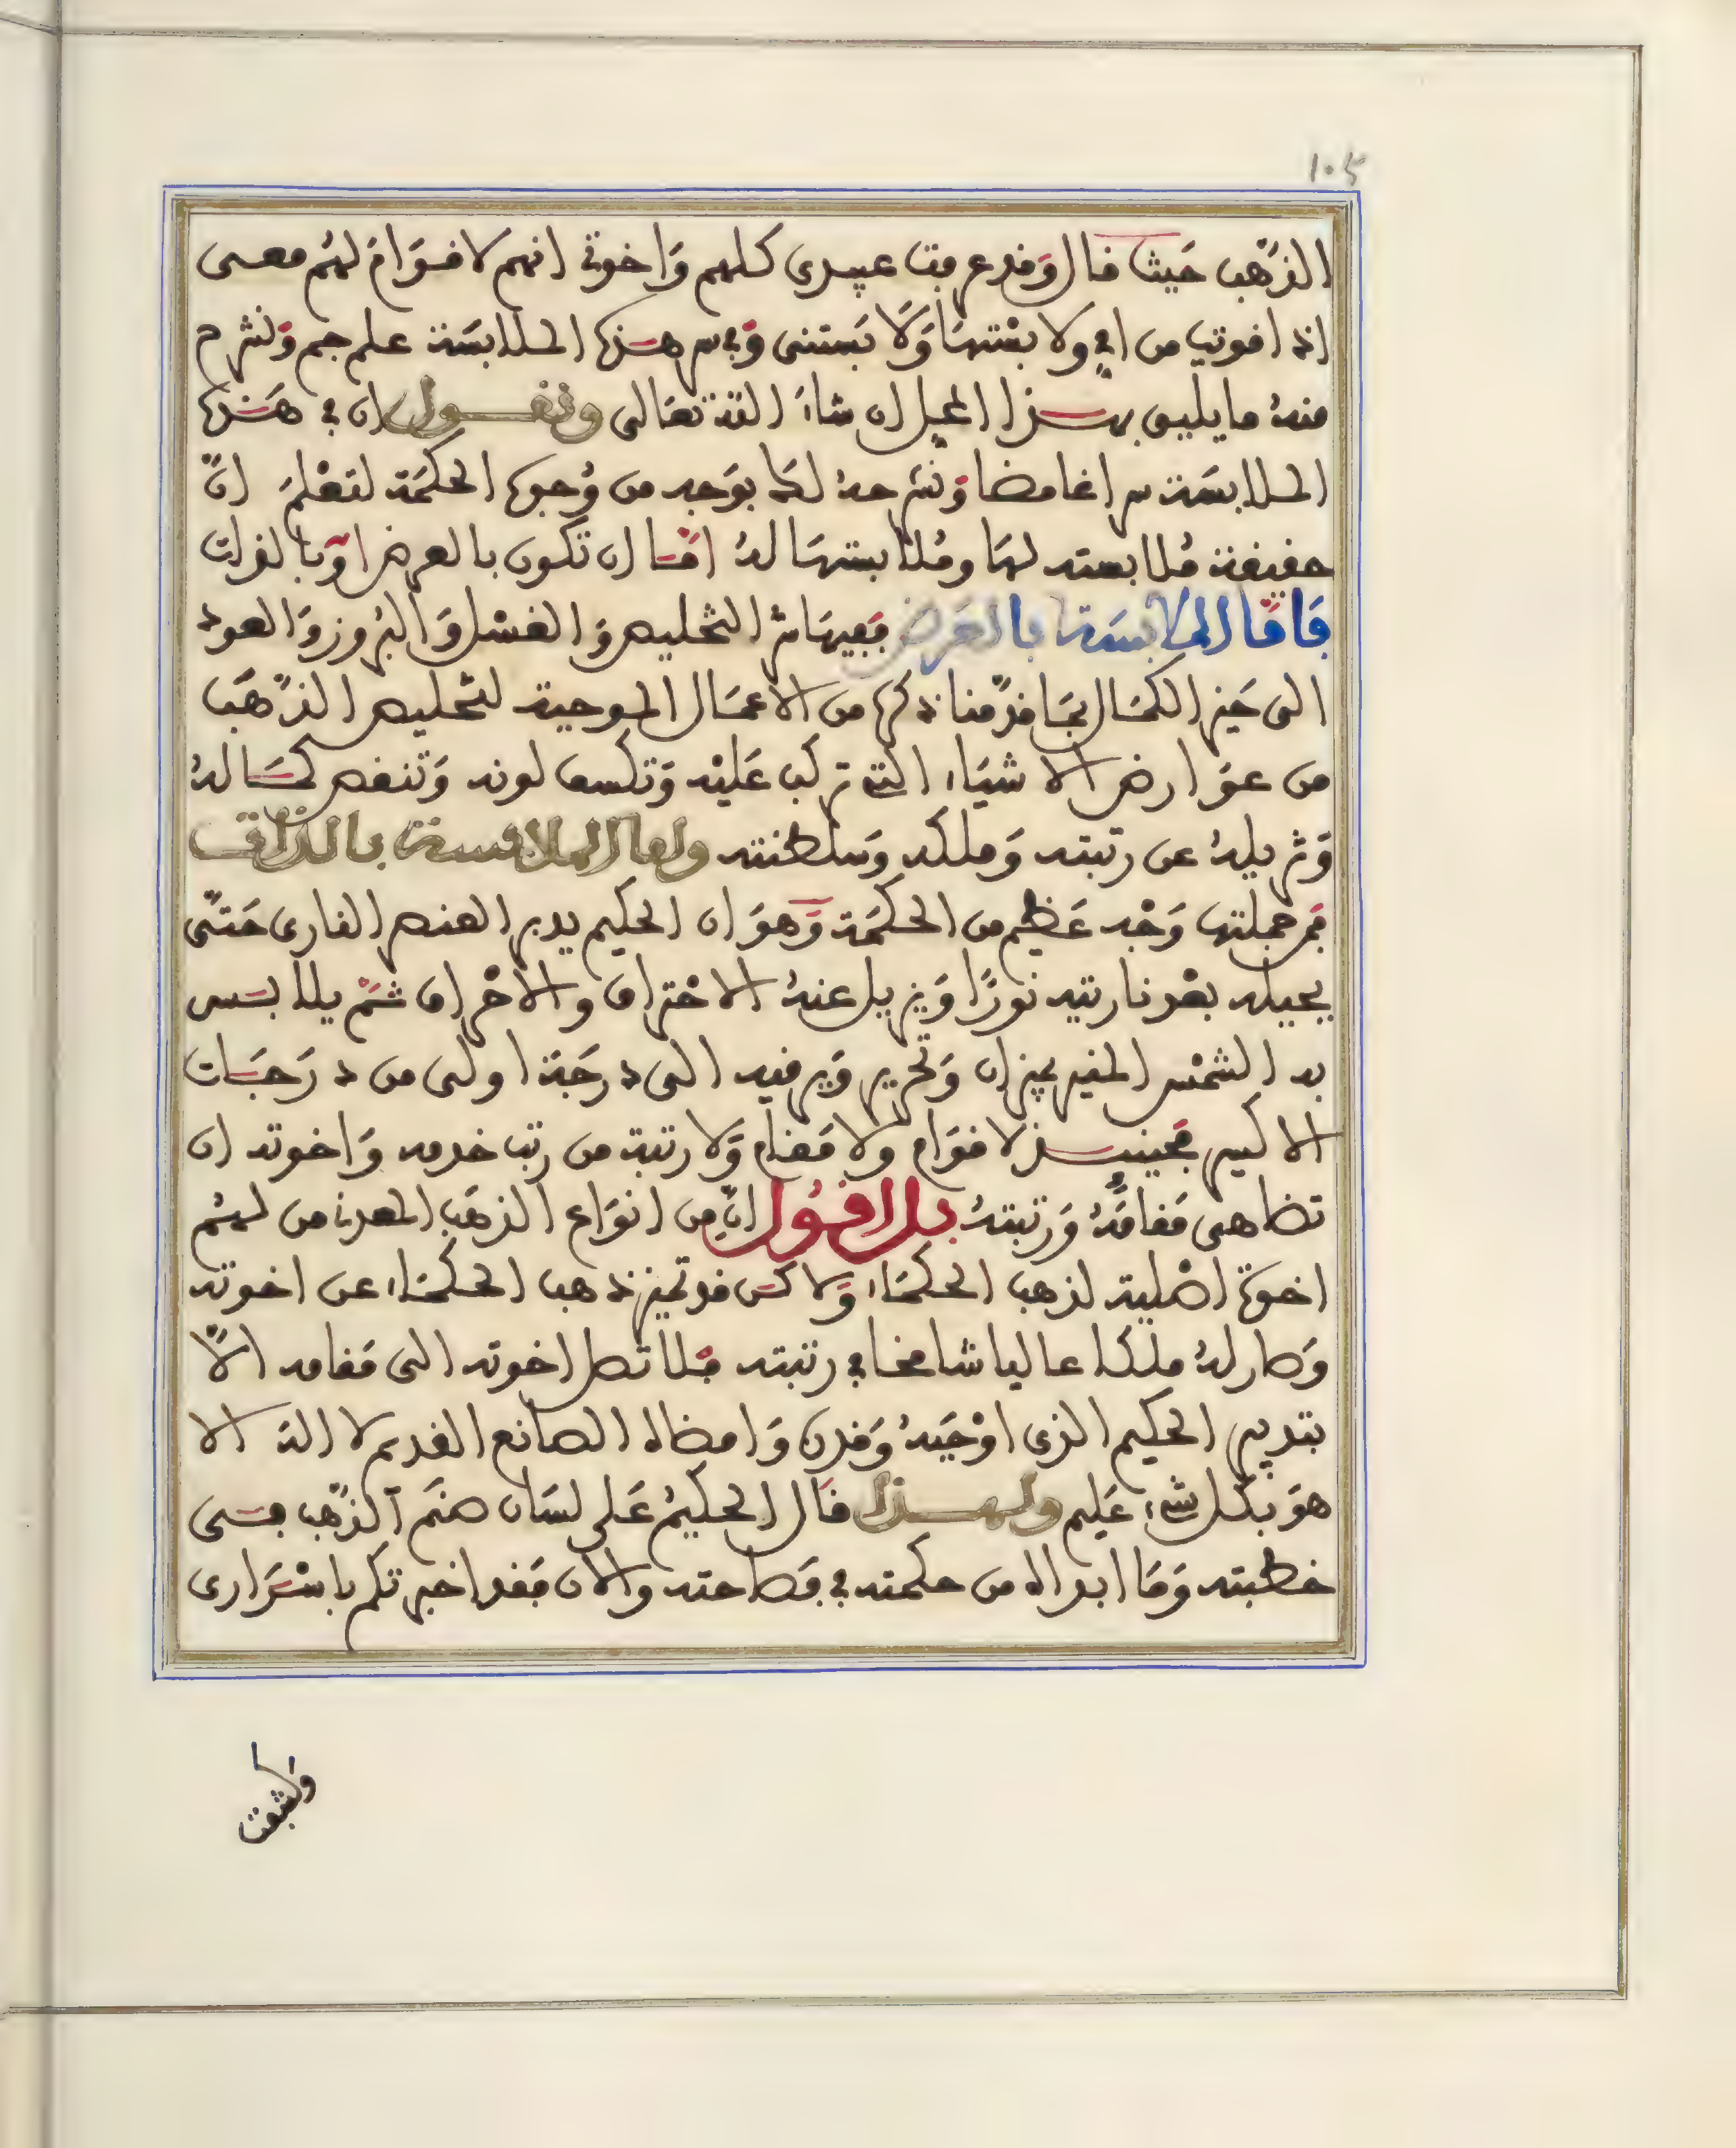 ١٠٥
الذَّهب حَيث قال وَقد عرفت عبيدى كلهم وَاخوتى انهم لا قوَامَ لهُم معى
اذا قويت من ابى ولابستها وَلَابستنى وَفى سر هذه الملابسَة علم جم وَنشرح
منهُ ما يليق بهذا المحل ان شاءَ الله تعَالى ونقول ان فى هَذه
الملابسَة سرا غامضا وَنشرحهُ لك بوَجه من وُجوه الحكمَة لتعْلمَ انّ
حقيقة مُلابسته لهَا ومُلابستهَا لهُ امّا ان تكون بالعرض اوْ بالذات
فَامَّا الملابسَة بالعَرض فَفيهَا سر التخليص وَالغسْل وَالبُروز وَالعود
الى حَيز الكمَال بمَا قدّمنا ذكره من الاعمَال الموجبة لتخليص الذّهَب
من عوَارض الاشيَاء التى تركب عَليْه وَتكسف لونه وَتنقص كمَالهُ
وَتزيلهُ عن رتبته وَملكه وَسلطنته واما الملابسة بالذات
فمن جملتها وَجْه عَظيم من الحكمَة وَهوَ ان الحكيم يدبر العنصر النارى حَتّى
يحيله بعْد ناريته نورًا وَيزيل عنهُ الاحْتراق والاحْراق ثمّ يلابس
به الشمْس المنير بميزان وَتحرير وَيرقيه الى درجَة اولى من درَجَات
الاكسير فحينئذ لا قوَام ولا مَقام وَلا رتبة من رتب خدمه وَاخوته ان
تضاهى مَقامَهُ وَرتبتهُ بل اقول انّ من انوَاع الذهَب المعدنى من لهُم
اخوة اصْلية لذهب الحكمَاء وَلاكن قد تميز ذهب الحكمَاء عن اخوته
وَصار لهُ ملكا عاليا شامخا فى رتبته فلا تصل اخوته الى مَقامه الّا
بتدبير الحكيم الذى اوْجَبهُ وَقدره وَامضاه الصانع القديم لا اله الا
هوَ بكل شىء عَليم ولهذا قال الحكيمُ عَلى لسَان صنَم الذّهب فى
خطبته وَمَا ابداه من حكمته فى فصاحته والان فقد اخبرتكم باسْرَارى
وكشفت